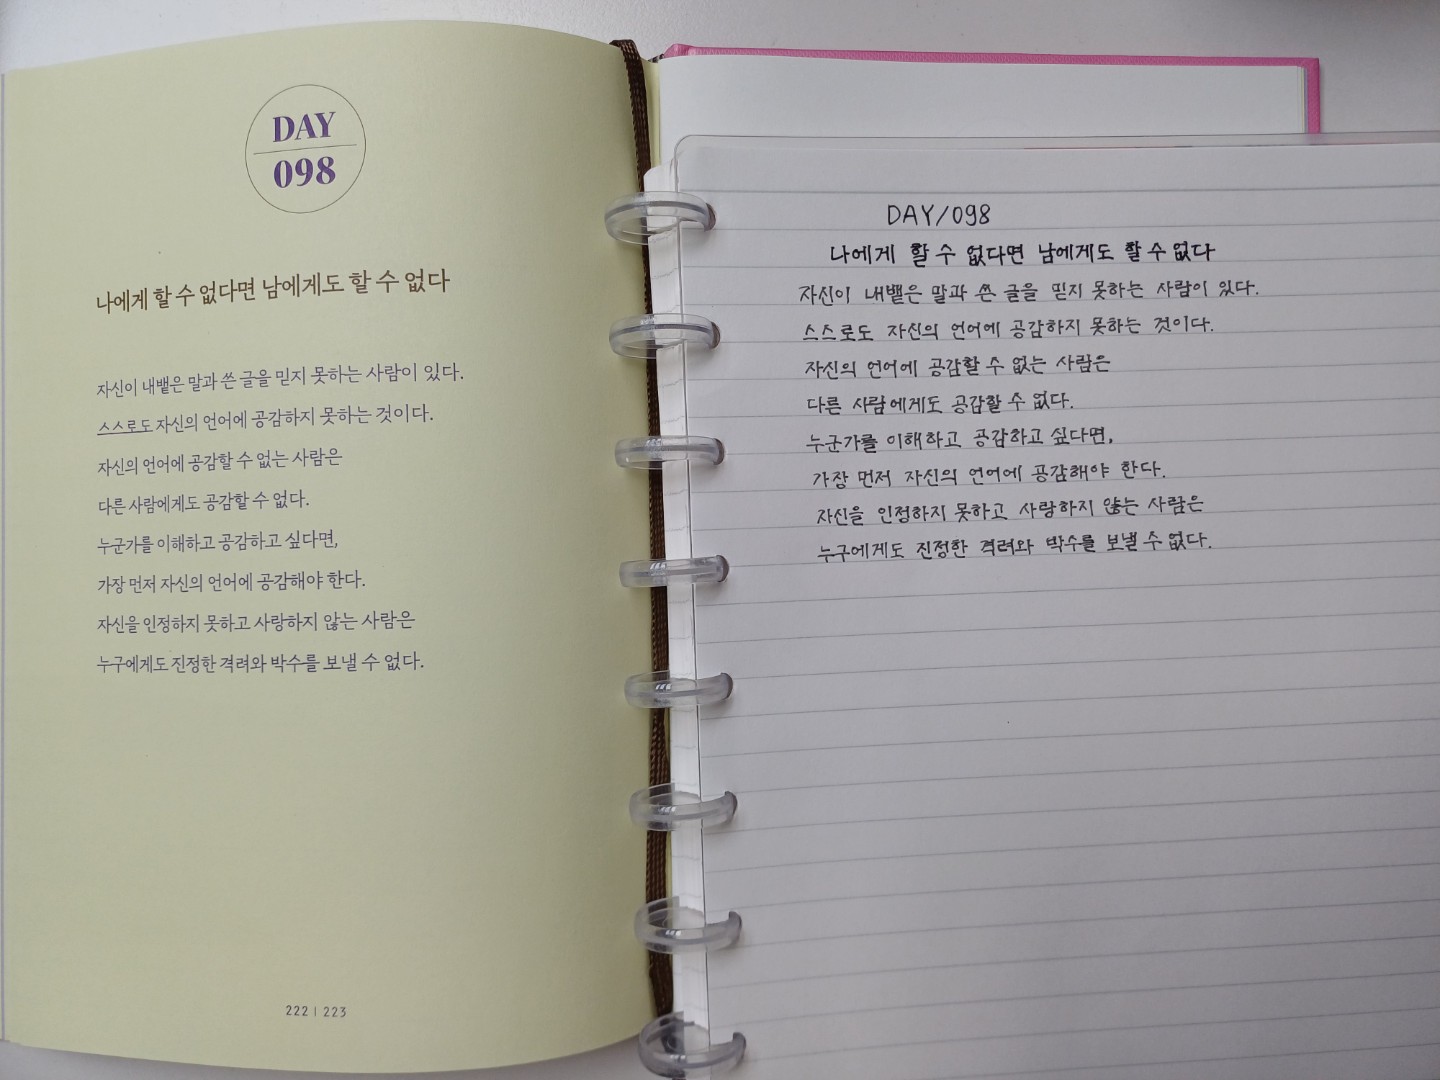 DAY
098
나에게 할 수 없다면 남에게도 할 수 없다
자신이 내뱉은 말과 쓴 글을 믿지 못하는 사람이 있다.
스스로도 자신의 언어에 공감하지 못하는 것이다.
자신의 언어에 공감할 수 없는 사람은
다른 사람에게도 공감할 수 없다.
누군가를 이해하고 공감하고 싶다면,
가장 먼저 자신의 언어에 공감해야 한다.
자신을 인정하지 못하고 사랑하지 않는 사람은
누구에게도 진정한 격려와 박수를 보낼 수 없다.
222 | 223
DAY/098
나에게 할 수 없다면 남에게도 할 수 없다
자신이 내뱉은 말과 쓴 글을 믿지 못하는 사람이 있다.
스스로도 자신의 언어에 공감하지 못하는 것이다.
자신의 언어에 공감할 수 없는 사람은
다른 사람에게도 공감할 수 없다.
누군가를 이해하고 공감하고 싶다면,
가장 먼저 자신의 언어에 공감해야 한다.
자신을 인정하지 못하고 사랑하지 않는 사람은
누구에게도 진정한 격려와 박수를 보낼 수 없다.